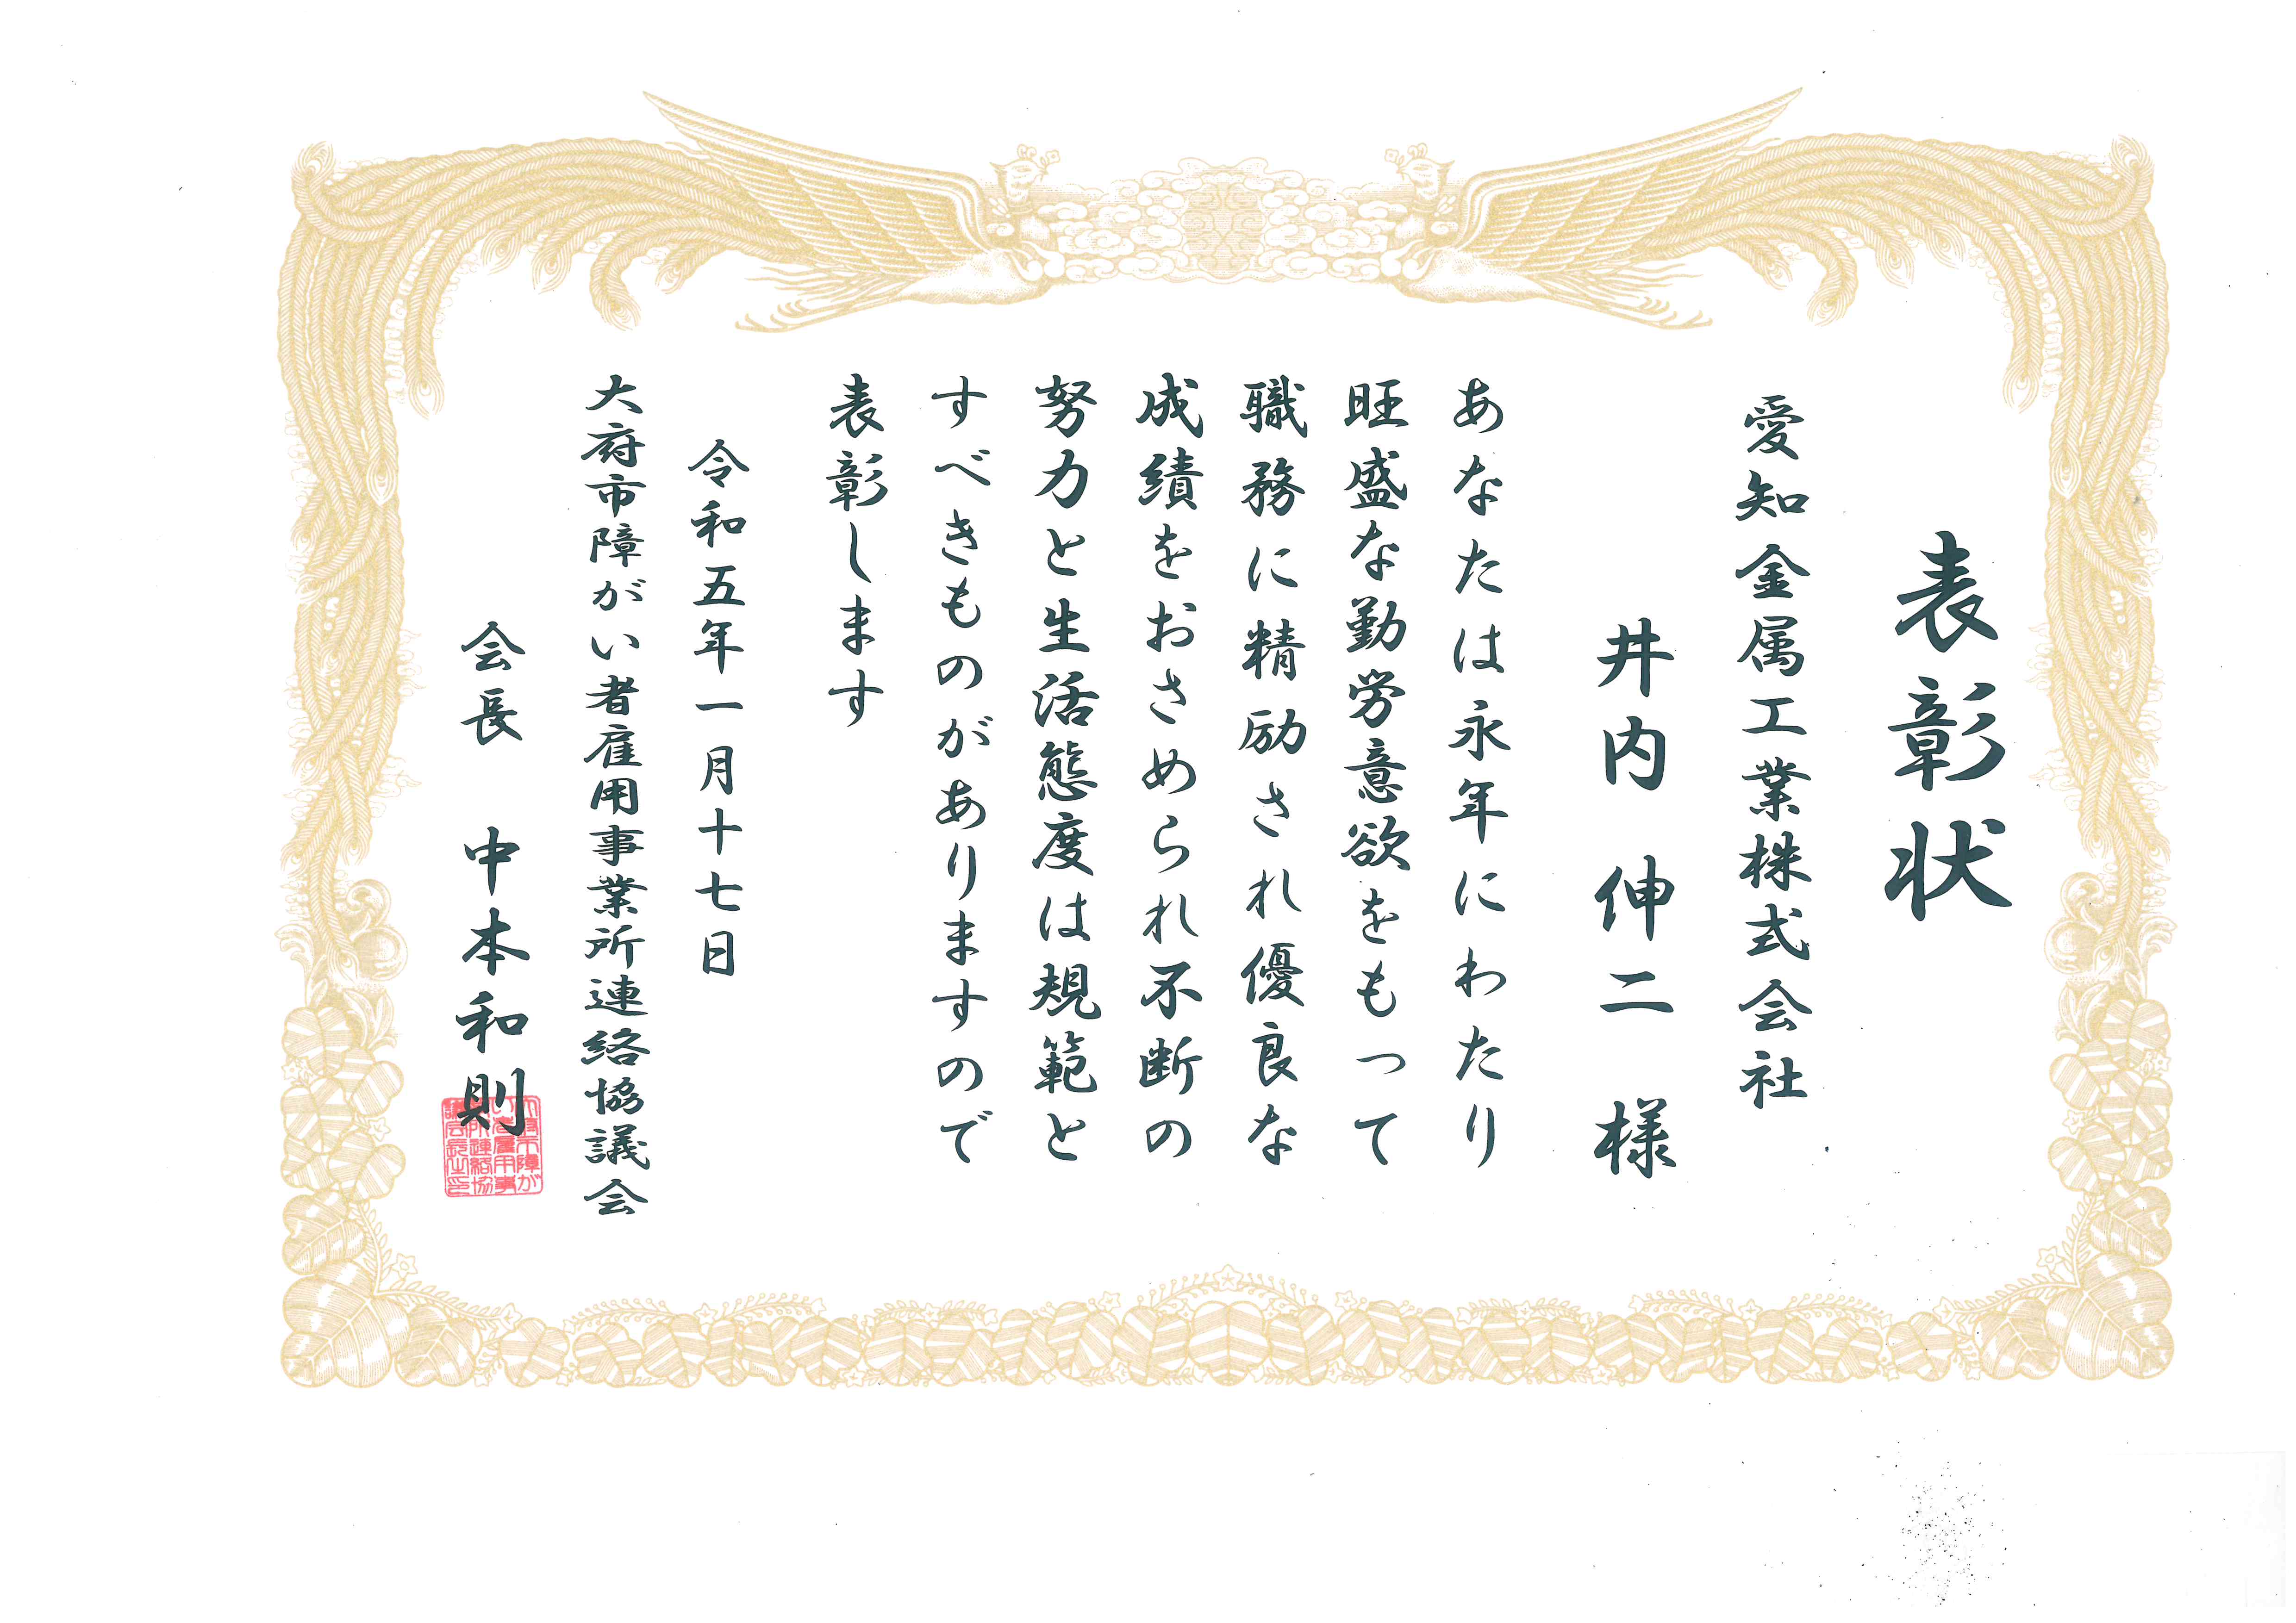 表彰状
愛知金属工業株式会社
井内 伸二 様
あなたは永年にわたり
旺盛な勤労意欲をもって
職務に精励され優良な
成績をおさめられ不断の
努力と生活態度は規範と
すべきものがありますので
表彰します
令和五年一月十七日
大府市障がい者雇用事業所連絡協議会
会長 中本和則